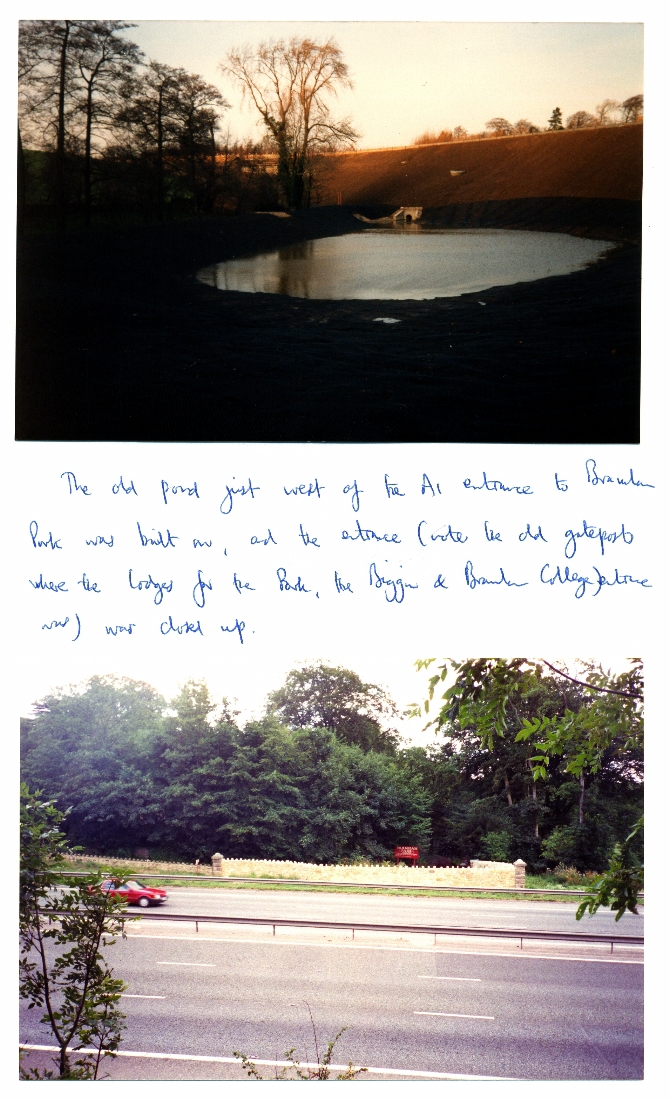 The old pond just west of the A1 entrance to Bramham
Park was built on, and the entrance (note the old gateposts
where the lodges for the Park, the Biggin & Bramham College entrance
was) was closed up.